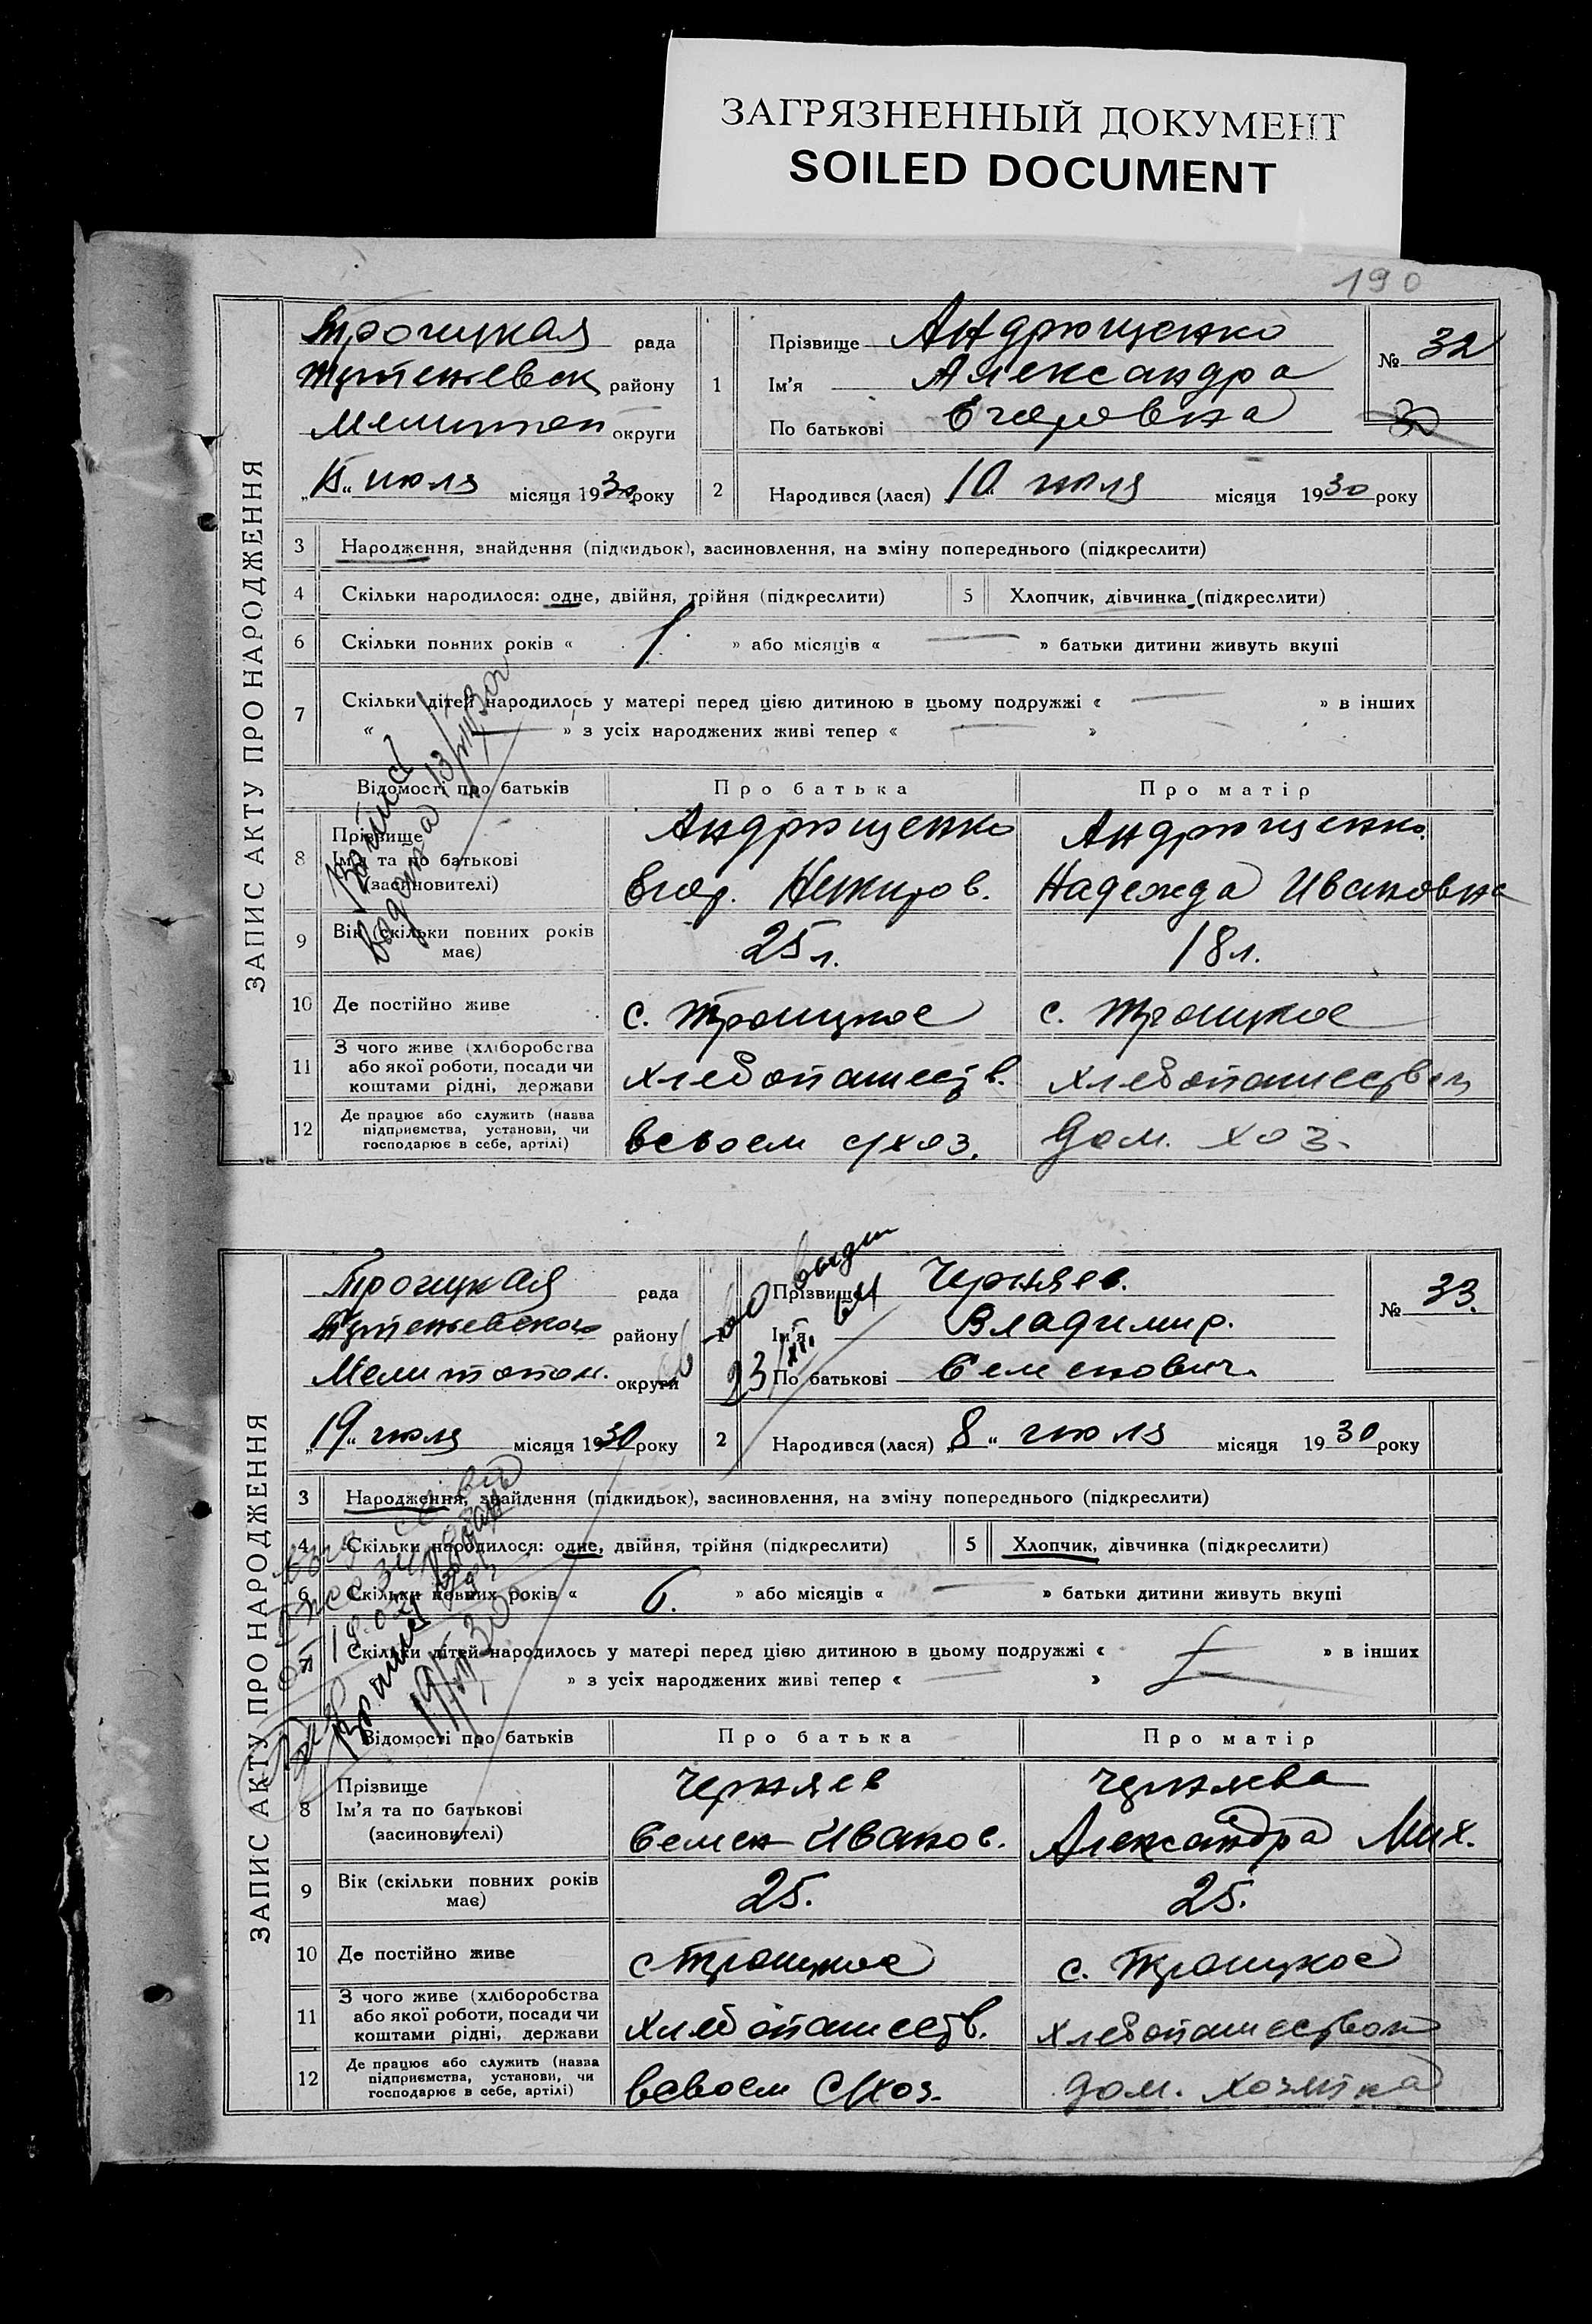 ЗАГРЯЗНЕННЫЙ ДОКУМЕНТ
SOILED DOCUMENT
190
ЗАПИС АКТУ ПРО НАРОДЖЕННЯ
Троицкая рада
району
Мелитоп округи
„15“ июля місяця 1930 року
1
Прізвище Андрющенко
Ім'я Александра
По батькові Егоровна
№ 32
2 Народився (лася) 10 июля місяця 1930 року
3 Народження, знайдення (підкидьок), засиновлення, на зміну попереднього (підкреслити)
4 Скільки народилося: одне, двійня, трійня (підкреслити) 5 Хлопчик, дівчинка (підкреслити)
6 Скільки повних років « 1. » або місяців « — » батьки дитини живуть вкупі
7 Скільки дітей народилось у матері перед цією дитиною в цьому подружжі « — » в інших
« — » з усіх народжених живі тепер « — »
Відомості про батьків Про батька Про матір
8 Прізвище
Ім'я та по батькові
(засиновителі)
Андрющенко Андрющенко
Егор. Надежда Ивановна
9 Вік (скільки повних років має) 25 л. 18 л.
10 Де постійно живе с. Троицкое с. Троицкое
11 З чого живе (хліборобства
або якої роботи, посади чи
коштами рідні, держави
хлебопашеств. хлебопашеством
12 Де працює або служить (назва
підприємства, установи, чи
господарює в себе, артілі)
всвоем с/хоз. дом. хоз.
13/VII 30 г
ЗАПИС АКТУ ПРО НАРОДЖЕННЯ
Троицкая рада
району
Мелитопол. округи
„19“ июля місяця 1930 року
Прізвище Черняев.
Ім'я Владимир.
По батькові Семенович.
№ 33.
2 Народився (лася) „8“ июля місяця 1930 року
3 Народження, знайдення (підкидьок), засиновлення, на зміну попереднього (підкреслити)
4 Скільки народилося: одне, двійня, трійня (підкреслити) 5 Хлопчик, дівчинка (підкреслити)
6 Скільки повних років « 6. » або місяців « — » батьки дитини живуть вкупі
Скільки дітей народилось у матері перед цією дитиною в цьому подружжі « » в інших
» з усіх народжених живі тепер « — »
Відомості про батьків Про батька Про матір
8 Прізвище
Ім'я та по батькові
(засиновителі)
Черняев Черняева
Семен Иванов. Александра Мих.
9 Вік (скільки повних років має) 25. 25.
10 Де постійно живе с Троицкое с. Троицкое
11 З чого живе (хліборобства
або якої роботи, посади чи
коштами рідні, держави
хлебопашеств. хлебопашеством
12 Де працює або служить (назва
підприємства, установи, чи
господарює в себе, артілі)
всвоем с/хоз. дом. хозяйка